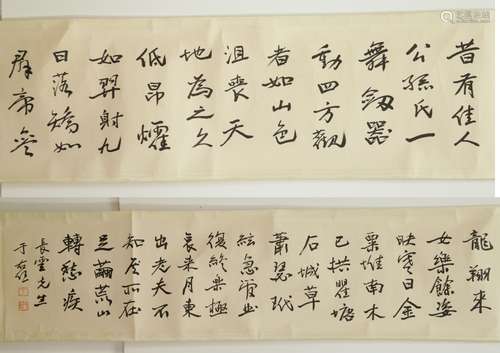 昔有佳人
公孫氏一
舞劔器
動四方觀
者如山色
沮喪天
地為之久
低昂㸌
如羿射九
日落矯如
群帝參
龍翔來
女樂餘姿
映寒日金
粟堆南木
已拱瞿塘
石城草
蕭瑟玳
絃急管曲
復終樂極
哀来月東
出老夫不
知其所往
足繭荒山
轉愁疾
長雲先生
于右任